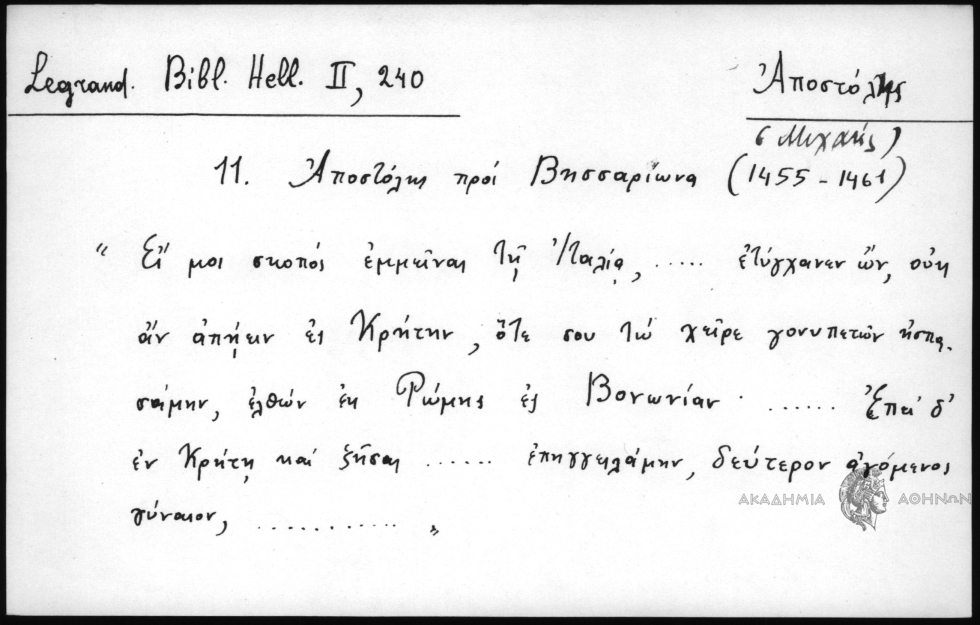 Legrand. Bibl. Hell. II, 240
Ἀποστόλης
(Μιχαῆς)
11. Ἀποστόλης πρός Βησσαρίωνα (1455-1461)
“ Εἴ μοι σκοπός ἐμμεῖναι τῇ Ἰταλίᾳ, ..... ἐτύγχανεν ὤν, οὐκ
ἄν ἀπῄειν ἐς Κρήτην, ὅτε σου τώ χεῖρε γονυπετῶν ἠσπα-
σάμην, ἐλθών ἐκ Ρώμης ἐς Βονωνίαν· ...... Ἐπεί δ'
ἐν Κρήτῃ καί ζῆσαι ...... ἐπηγγειλάμην, δεύτερον ἀγόμενος
γύναιον, ........... „
ΑΚΑΔΗΜΙΑ ΑΘΗΝΩΝ